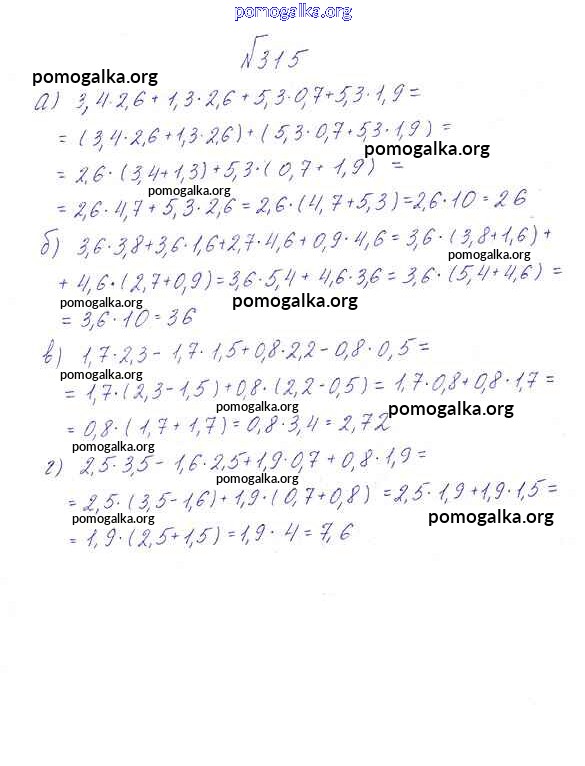 pomogalka.org
№315
pomogalka.org
а) 3,4·2,6+1,3·2,6+5,3·0,7+5,3·1,9=
=(3,4·2,6+1,3·2,6)+(5,3·0,7+5,3·1,9)=
pomogalka.org
=2,6·(3,4+1,3)+5,3·(0,7+1,9)=
pomogalka.org
=2,6·4,7+5,3·2,6=2,6·(4,7+5,3)=2,6·10=26
б) 3,6·3,8+3,6·1,6+2,7·4,6+0,9·4,6=3,6·(3,8+1,6)+
pomogalka.org
+4,6·(2,7+0,9)=3,6·5,4+4,6·3,6=3,6·(5,4+4,6)=
pomogalka.org pomogalka.org
=3,6·10=36
в) 1,7·2,3-1,7·1,5+0,8·2,2-0,8·0,5=
pomogalka.org
=1,7·(2,3-1,5)+0,8·(2,2-0,5)=1,7·0,8+0,8·1,7=
pomogalka.org pomogalka.org
=0,8·(1,7+1,7)=0,8·3,4=2,72
pomogalka.org
г) 2,5·3,5-1,6·2,5+1,9·0,7+0,8·1,9=
pomogalka.org
=2,5·(3,5-1,6)+1,9·(0,7+0,8)=2,5·1,9+1,9·1,5=
pomogalka.org pomogalka.org
=1,9·(2,5+1,5)=1,9·4=7,6